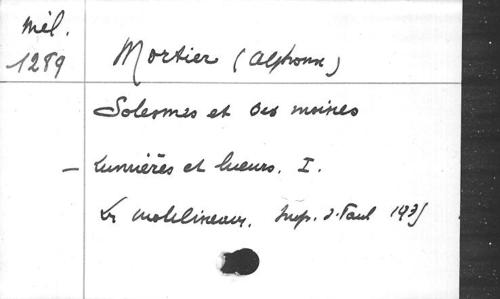 Mél.
1289
Mortier (Alphonse)
Solesmes et ses moines
– Lumières et lueurs. I.
Les Moulineaux. Imp. S. Paul 1935